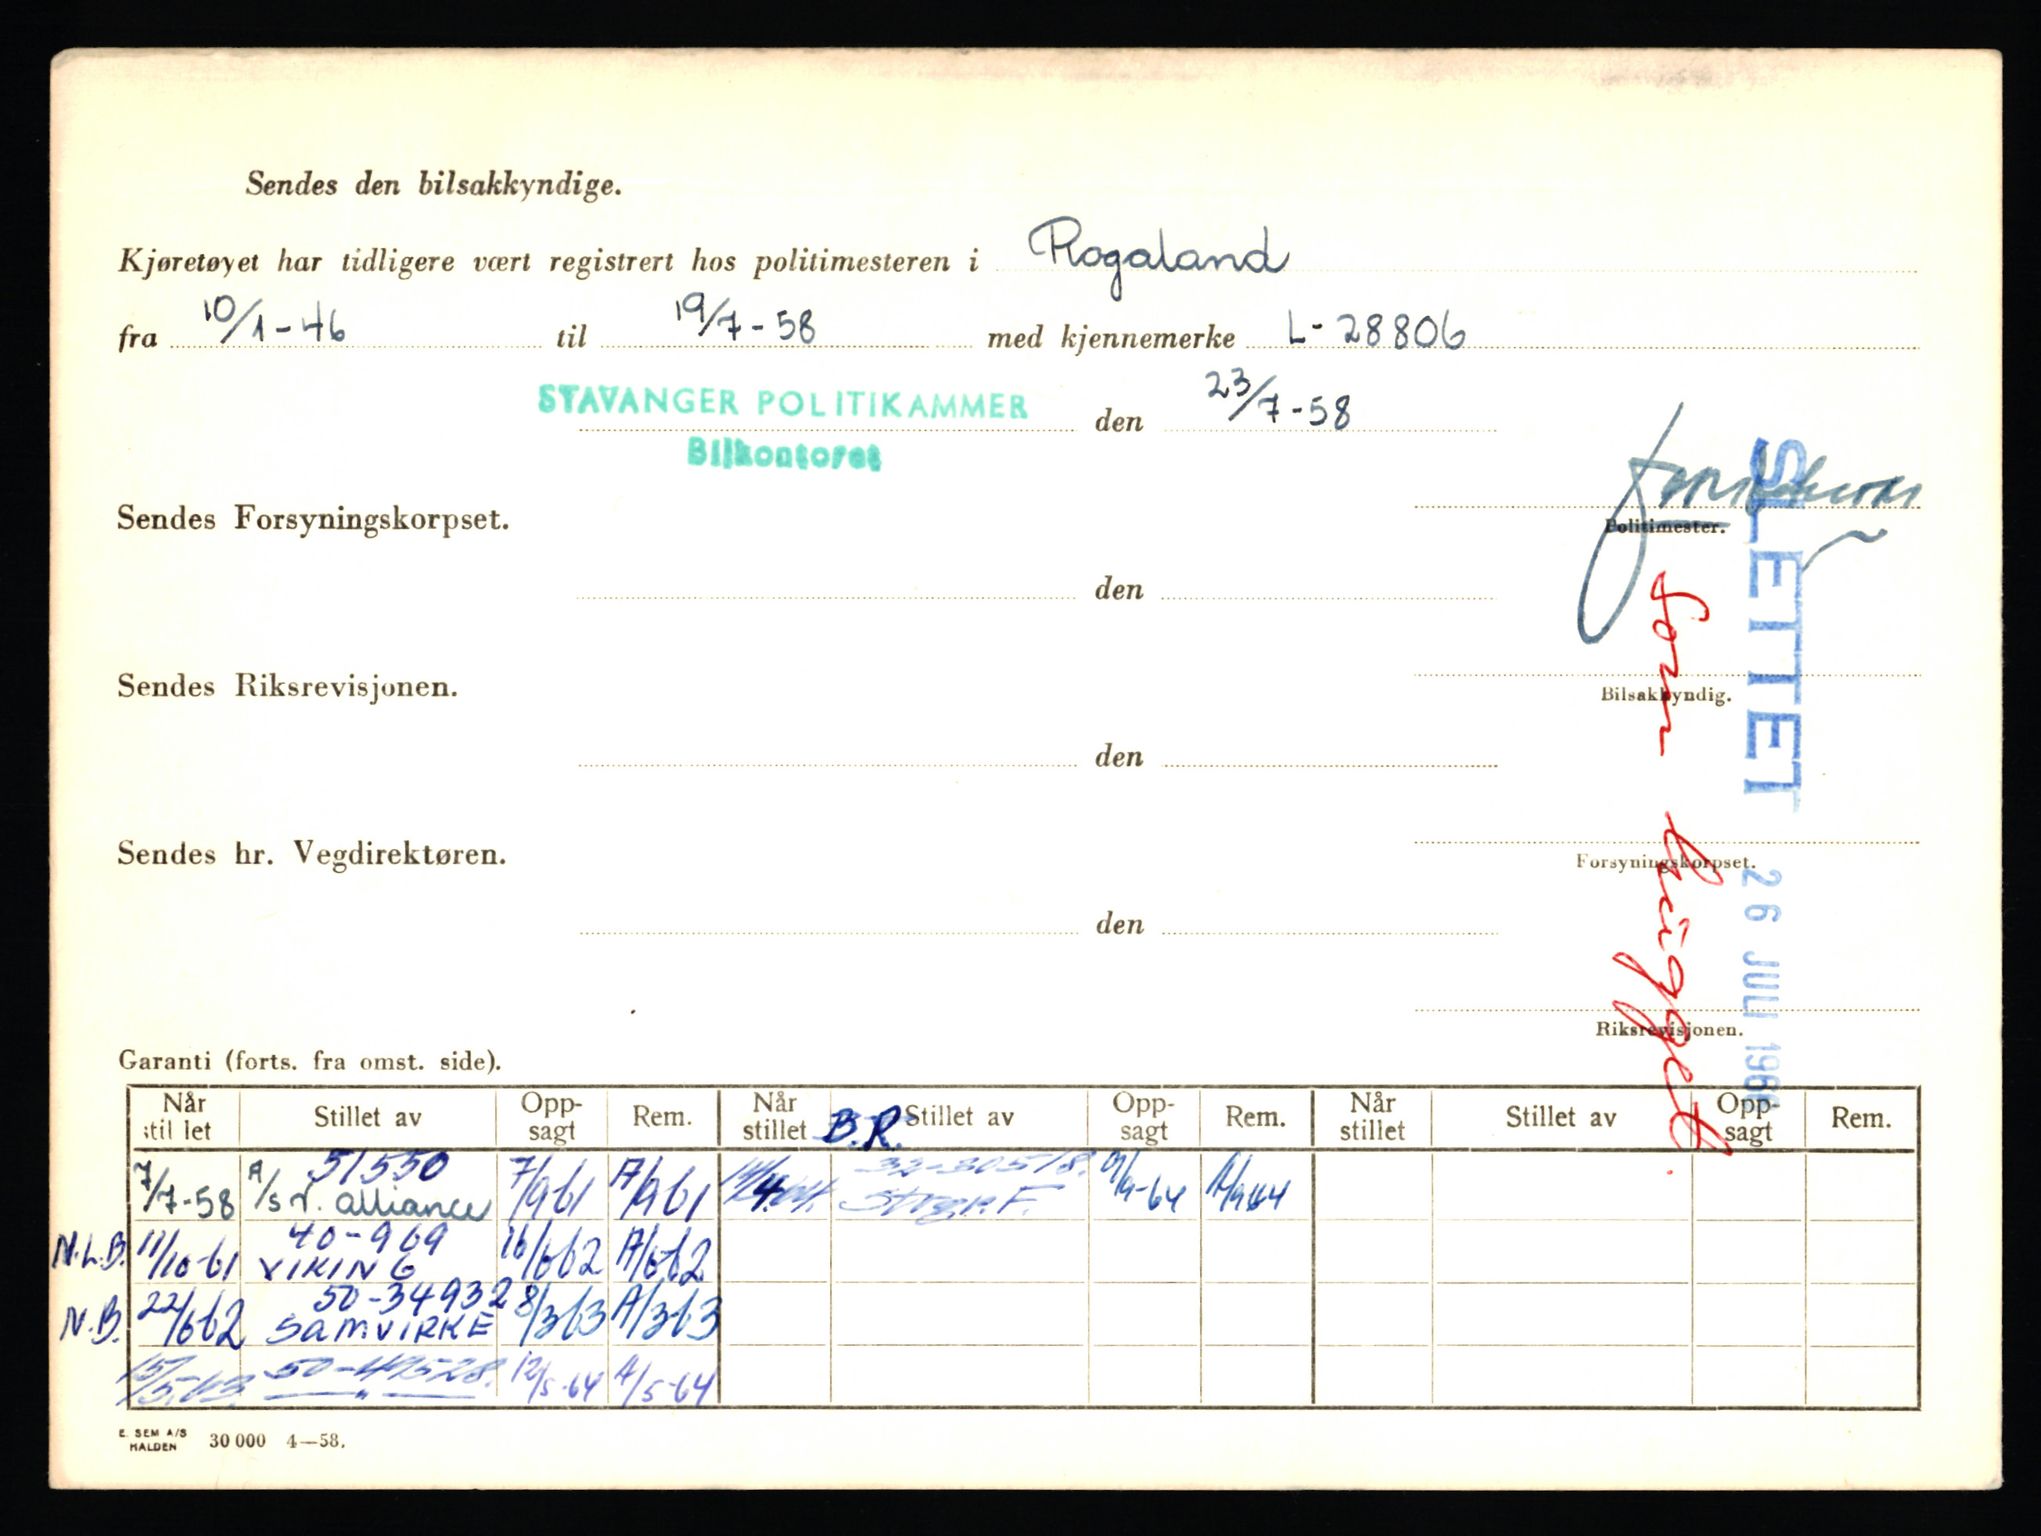 Sendes den bilsakkyndige.
Kjøretøyet har tidligere vært registrert hos politimesteren i Rogaland
fra 10/1-46 til 19/7-58 med kjennemerke L-28806
STAVANGER POLITIKAMMER den 23/7-58
Bilkontoret
Politimester.
Sendes Forsyningskorpset.
den
Bilsakkyndig.
Sendes Riksrevisjonen.
den
Forsyningskorpset.
Sendes hr. Vegdirektøren.
den
Riksrevisjonen.
SLETTET 26 JULI 196
Som hugget.
Garanti (forts. fra omst. side).
Når stillet Stillet av Opp-sagt Rem. Når stillet B.R. Stillet av Opp-sagt Rem. Når stillet Stillet av Opp-sagt Rem.
7/7-58 51550 A/S N. alliance 7/961 A/961 32-30518. 9/9-64 A/964
N.L.B. 11/10-61 40-969 VIKING 16/662 A/662
N.B. 22/662 50-34932 SAMVIRKE 8/363 A/363
15/5.63. 50-49528. — " — 12/5-64 A/5-64
E. SEM A/S HALDEN 30 000 4—58.